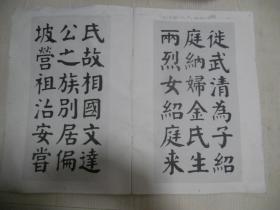 徙武清為子紹
庭納婦金氏生
兩烈女紹庭来
民故相國文達
公之族別居偏
坡營祖治安嘗